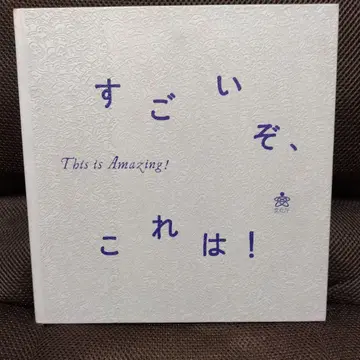 すごいぞ、
This is Amazing!
これは！
文化庁